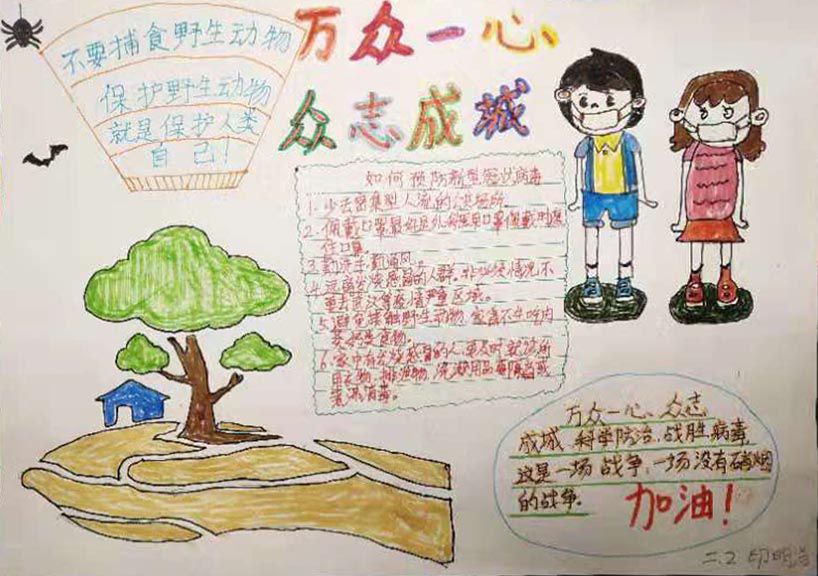 不要捕食野生动物
保护野生动物
就是保护人类
自己！
万众一心、
众志成城
如何预防新型冠状病毒
1.少去密集型人流的公共场所。
2.佩戴口罩最好是外科医用口罩佩戴时
住口鼻
3.勤洗手勤通风。
4.远离发烧感冒的人群。非必须情况不
要去武汉等疫情严重区域。
5.避免接触野生动物
类奶类食物。
6.家中有发烧感冒的人要及时就诊所
用衣物、排泄物、洗漱用品
消毒。
万众一心、众志
成城 科学防治、战胜病毒
这是一场战争、一场没有硝烟
的战争。
加油！
二.2